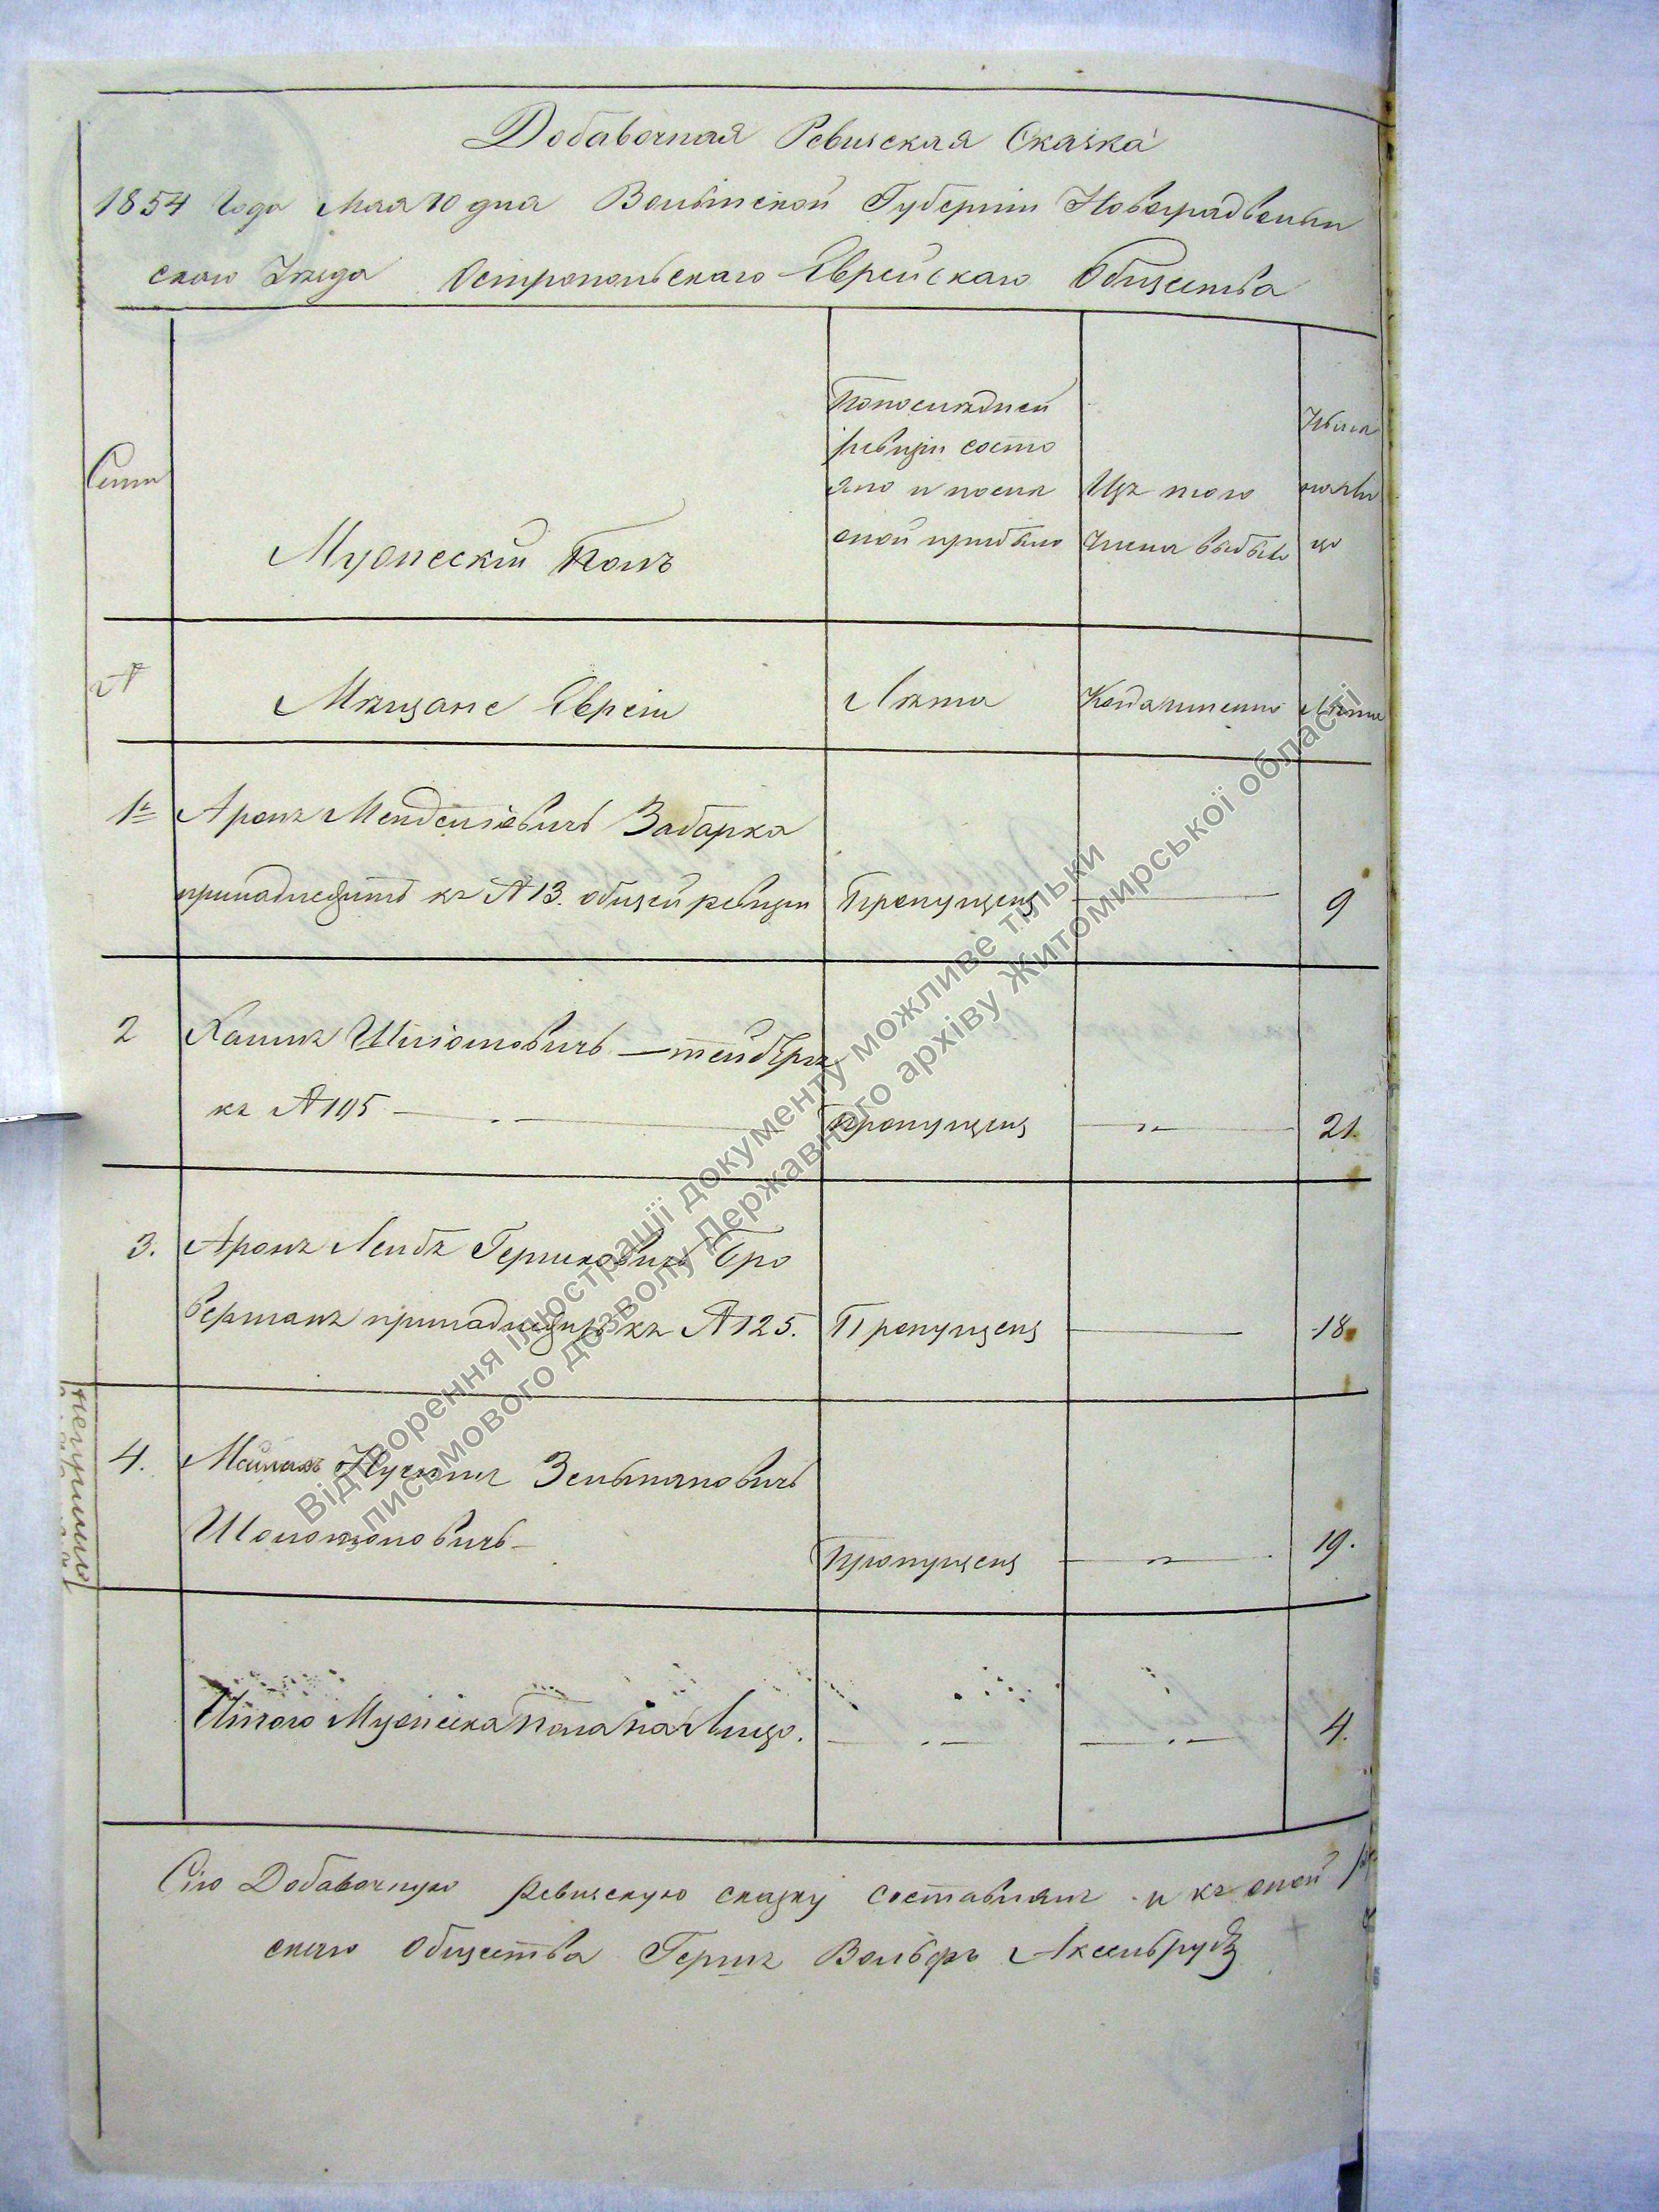 Добавочная Ревизская Сказка
1854 Года Мая 10 дня Волынской Губерніи Новоградволын
скаго Уезда Остропольскаго Еврейскаго Общества
Семьи
Мужескій Полъ
Попоследней
ревизіи состо
яло и после
оной прибыло
Изъ того
числа выбыло
Ныне
налы
цо
№
Мещане Евреи
Лета
Когда именно
Лета
1й Аронъ Менделіевичъ Забарка
принадлежитъ къ № 13. общей ревизіи Пропущенъ 9
2 Хаимъ Шліомовичъ
къ № 105 Пропущенъ " 21.
3. Аронъ Лейбъ Гершковичъ Бро
верманъ принадлежитъ къ № 125. Пропущенъ 18
4. Зельмановичъ
Шоломоновичъ Пропущенъ " 19.
Итого Мужеска пола на Лицо. 4.
Сію Добавочную Ревизскую сказку составлялъ и къ оной
скаго Общества Гершъ Вольфъ Аксельрудъ
Відтворення ілюстрації документу можливе тільки
письмового дозволу Державного архіву Житомирської області